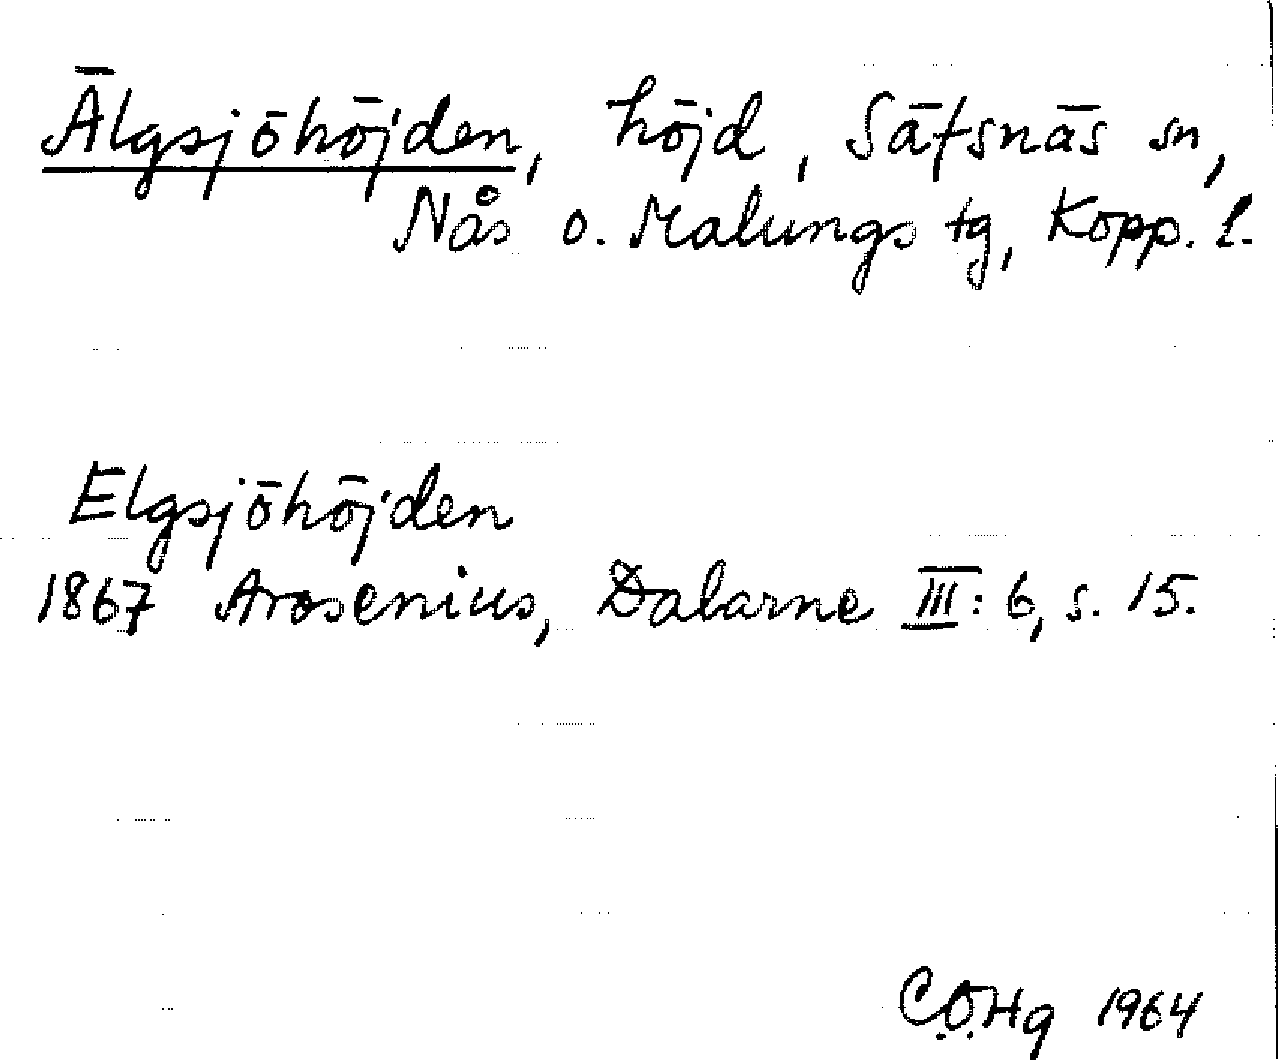 Älgsjöhöjden, höjd, Säfsnäs sn,
Nås o. Malungs tg, Kopp. l.
Elgsjöhöjden
1867 Arosenius, Dalarne III: 6, s. 15.
C.O.Hg 1964